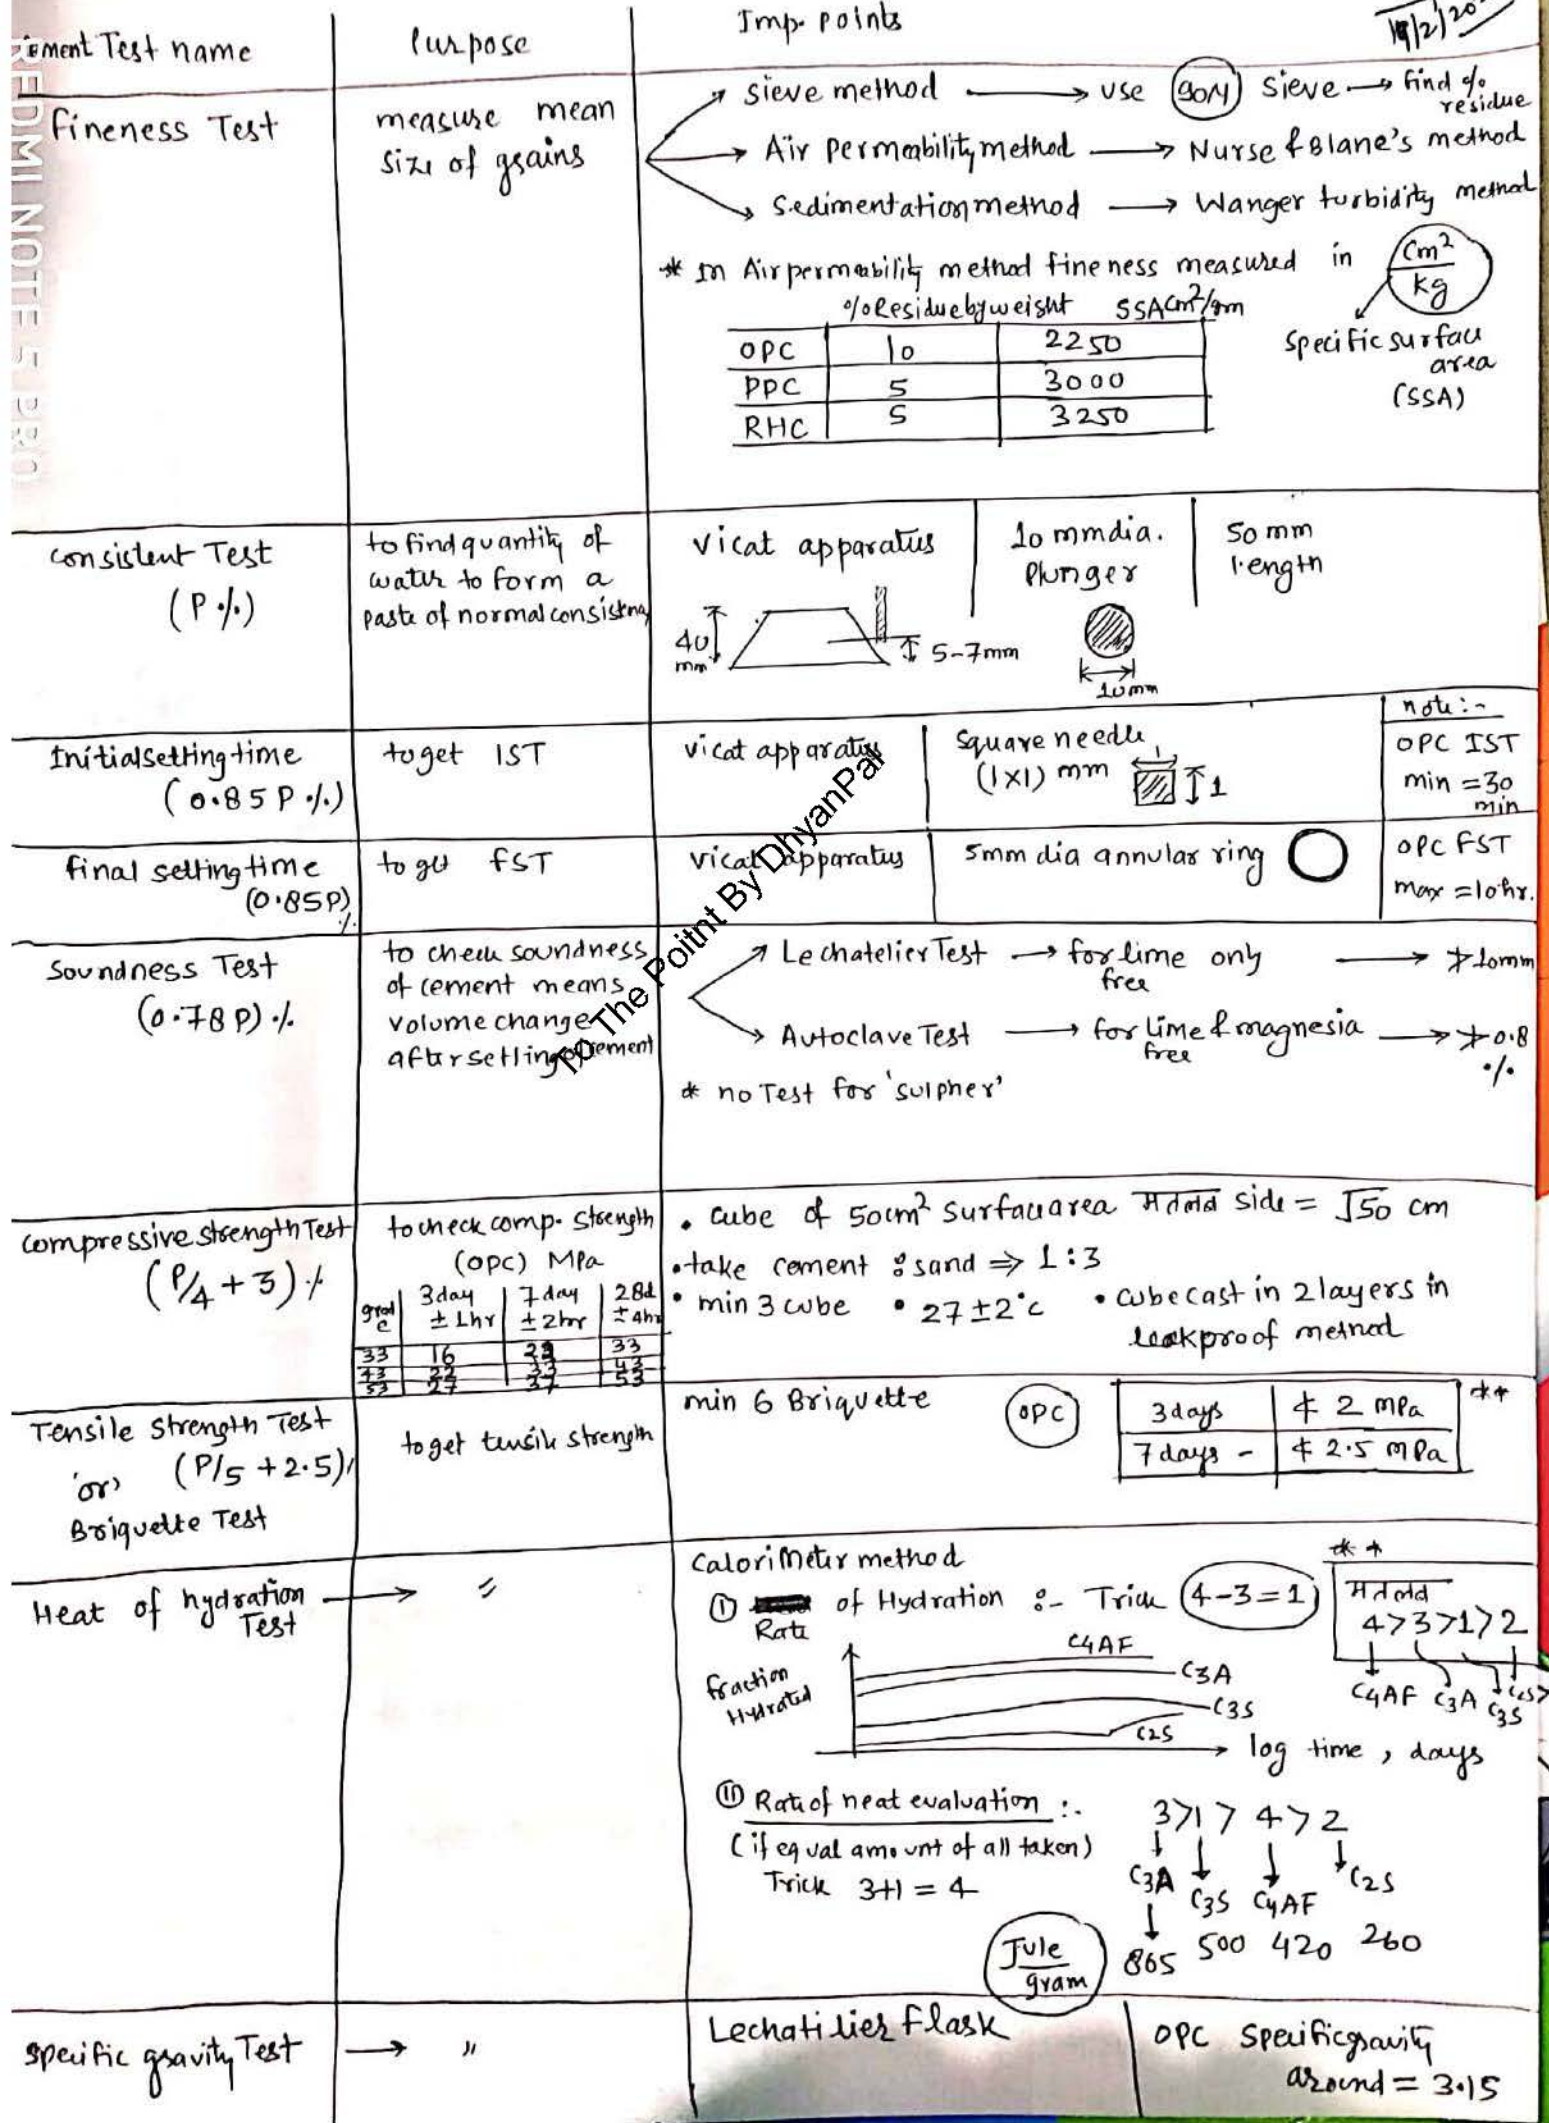 ement Test name
Purpose
Imp. points
REDMI NOTE 5 PRO
Fineness Test
measure mean
size of grains
sieve method → use 90M sieve → find % residue
Air permeability method → Nurse & Blane's method
Sedimentation method → Wanger turbidity method
* In Air permability method fineness measured in cm²/kg
Specific surface
area
(SSA)
% Residue by weight SSA cm²/gm
OPC 10 2250
PPC 5 3000
RHC 5 3250
Consistent Test
(P%)
to find quantity of
water to form a
paste of normal consistency
Vicat apparatus
10 mm dia.
Plunger
50 mm
length
40
mm
5-7mm
10mm
Initial setting time
(0.85 P%)
to get IST
vicat apparatus
square needle
(1×1) mm
1
note:-
OPC IST
min = 30
min
final setting time
(0.85P)
%
to get FST
vicat apparatus
5mm dia annular ring
OPC FST
max = 10 hr.
To The Poitnt By DhyanPal
Soundness Test
(0.78 P)%
to check soundness
of cement means
volume change
after setting of cement
Le chatelier Test → for lime only → ≯ 10mm
free
Autoclave Test → for lime & magnesia → ≯ 0.8
free
%
* no Test for 'sulpher'
compressive strength Test
(P/4 + 3)%
to check comp. strength
(OPC) MPa
grade 3day ± 1hr 7day ± 2hr 28d ± 4hr
33 16 33
43 22 33 43
53 27 37 53
• cube of 50cm² surface area मतलब side = √50 cm
• take cement : sand ⇒ 1:3
• min 3 cube • 27±2°c • cube cast in 2 layers in
leakproof method
Tensile Strength Test
'or' (P/5 + 2.5)%
Briquette Test
to get tensile strength
min 6 Briquette
OPC
3days ≮ 2 MPa
7 days - ≮ 2.5 MPa
**
Heat of hydration → "
Test
calorimeter method
① of Hydration :- Trick 4-3=1
Rate
**
मतलब
4>3>1>2
C4AF C3A C3S C2S
fraction
Hydrated
C4AF
C3A
C3S
C2S
log time, days
② Rate of heat evaluation :-
(if equal amount of all taken)
Trick 3+1 = 4
3>1>4>2
C3A C3S C4AF C2S
865 500 420 260
Jule
gram
specific gravity Test → "
Lechatilier Flask
OPC Specific gravity
around = 3.15